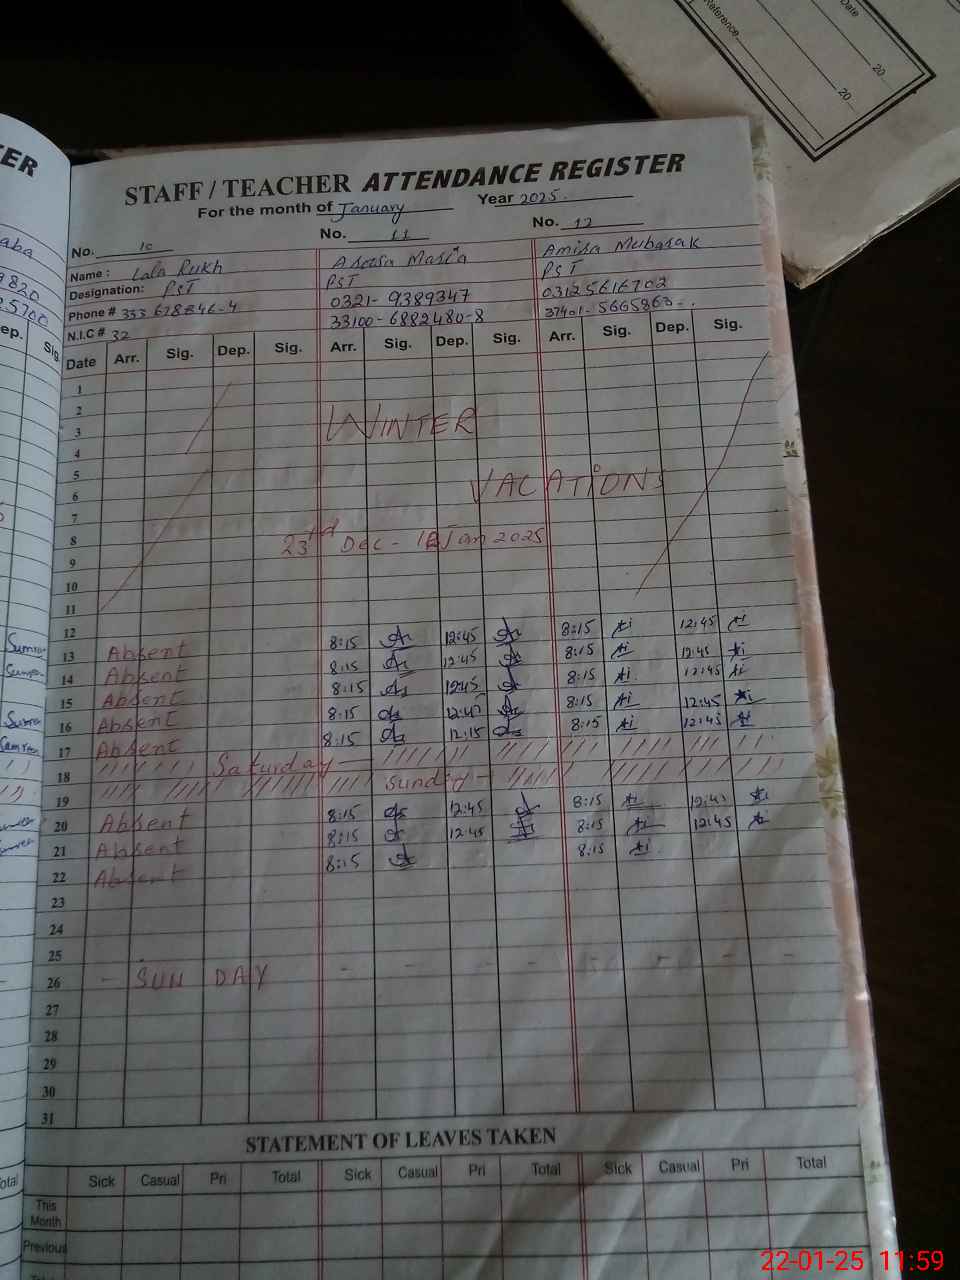 Reference
Date
20
20
ER
STAFF / TEACHER ATTENDANCE REGISTER
For the month of January Year 2025
No. 10 No. 11 No. 12
Name : Lala Rukh Masia Amisa Mubarak
Designation: PST PST PST
Phone # 0321-9389347 03125616702
N.I.C # 32 33100-6882480-8
Date Arr. Sig. Dep. Sig. Arr. Sig. Dep. Sig. Arr. Sig. Dep. Sig.
1
2
3 WINTER
4
5
6 VACATIONS
7
8 23rd Dec - Jan 2025
9
10
11
12
13 Absent 8:15 12:45 8:15 12:45
14 Absent 8:15 12:45 8:15 12:45
15 Absent 8:15 12:45 8:15 12:45
16 Absent 8:15 12:45 8:15 12:45
17 Absent 8:15 12:15 8:15 12:45
18 Saturday
19 Sunday
20 Absent 8:15 12:45 8:15 12:45
21 Absent 8:15 12:45 8:15 12:45
22 Absent 8:15 8:15
23
24
25
26 - SUN DAY - - - - - - - -
27
28
29
30
31
STATEMENT OF LEAVES TAKEN
Sick Casual Pri Total Sick Casual Pri Total Sick Casual Pri Total
This Month
Previous
22-01-25 11:59